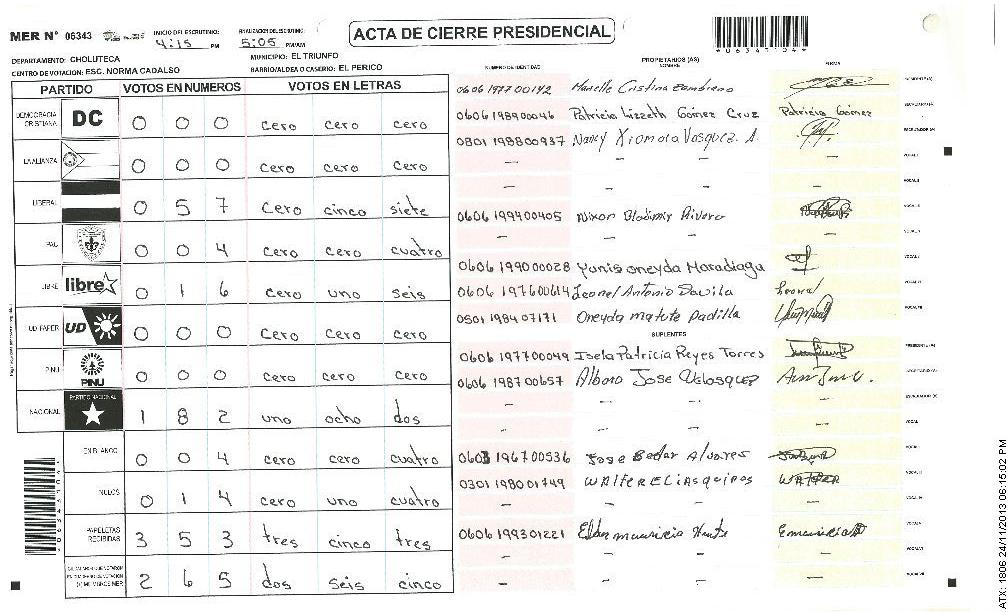 MER N° 06343
INICIO DEL ESCRUTINIO:
4:15 PM
FINALIZACION DEL ESCRUTINIO:
5:05 PM/AM
ACTA DE CIERRE PRESIDENCIAL
DEPARTAMENTO: CHOLUTECA
MUNICIPIO: EL TRIUNFO
CENTRO DE VOTACION: ESC. NORMA CADALSO
BARRIO/ALDEA O CASERIO: EL PERICO
PARTIDO VOTOS EN NUMEROS VOTOS EN LETRAS
DEMOCRACIA CRISTIANA DC 0 0 0 cero cero cero
LA ALIANZA 0 0 0 cero cero cero
LIBERAL 0 5 7 cero cinco siete
PAC 0 0 4 cero cero cuatro
LIBRE libre 0 1 6 cero uno seis
UD FAPER UD 0 0 0 cero cero cero
PINU PINU 0 0 0 cero cero cero
NACIONAL PARTIDO NACIONAL 1 8 2 uno ocho dos
EN BLANCO 0 0 4 cero cero cuatro
NULOS 0 1 4 cero uno cuatro
PAPELETAS RECIBIDAS 3 5 3 tres cinco tres
2 6 5 dos seis cinco
PROPIETARIOS (AS)
NUMERO DE IDENTIDAD NOMBRE FIRMA
0606 1977 00142 Cristina Zambrano
0606 1989 00046 Patricia Lizzeth Gómez Cruz Patricia Gómez
0801 1988 00937 Nancy Xiomara Vasquez. A.
0606 1994 00405 Nixon Bladimir Rivera
0606 1990 00028 Yunis Oneyda Maradiaga
0606 1976 00614 Leonel Antonio Davila Leonel
0501 1984 07171 Oneyda matute Padilla
SUPLENTES
0606 1977 00049 Isela Patricia Reyes Torres
0606 1987 00657 Alboro Jose Velasquez
0603 1967 00536 Jose Alvares
0301 1980 01749 WALTER ELIAS WALTER
0606 1993 01221 mauricio
063431041
ATX: 1806 24/11/2013 06:15:02 PM